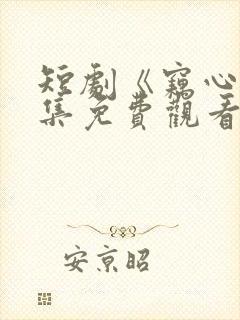 短劇《竊心
集免費觀看
安京昭